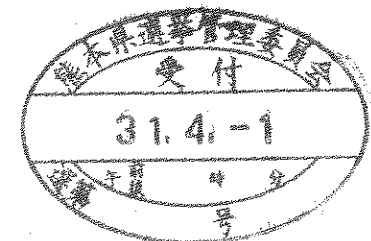 熊本県選挙管理委員会
受付
31.4.-1
午前後 時 分
第 号